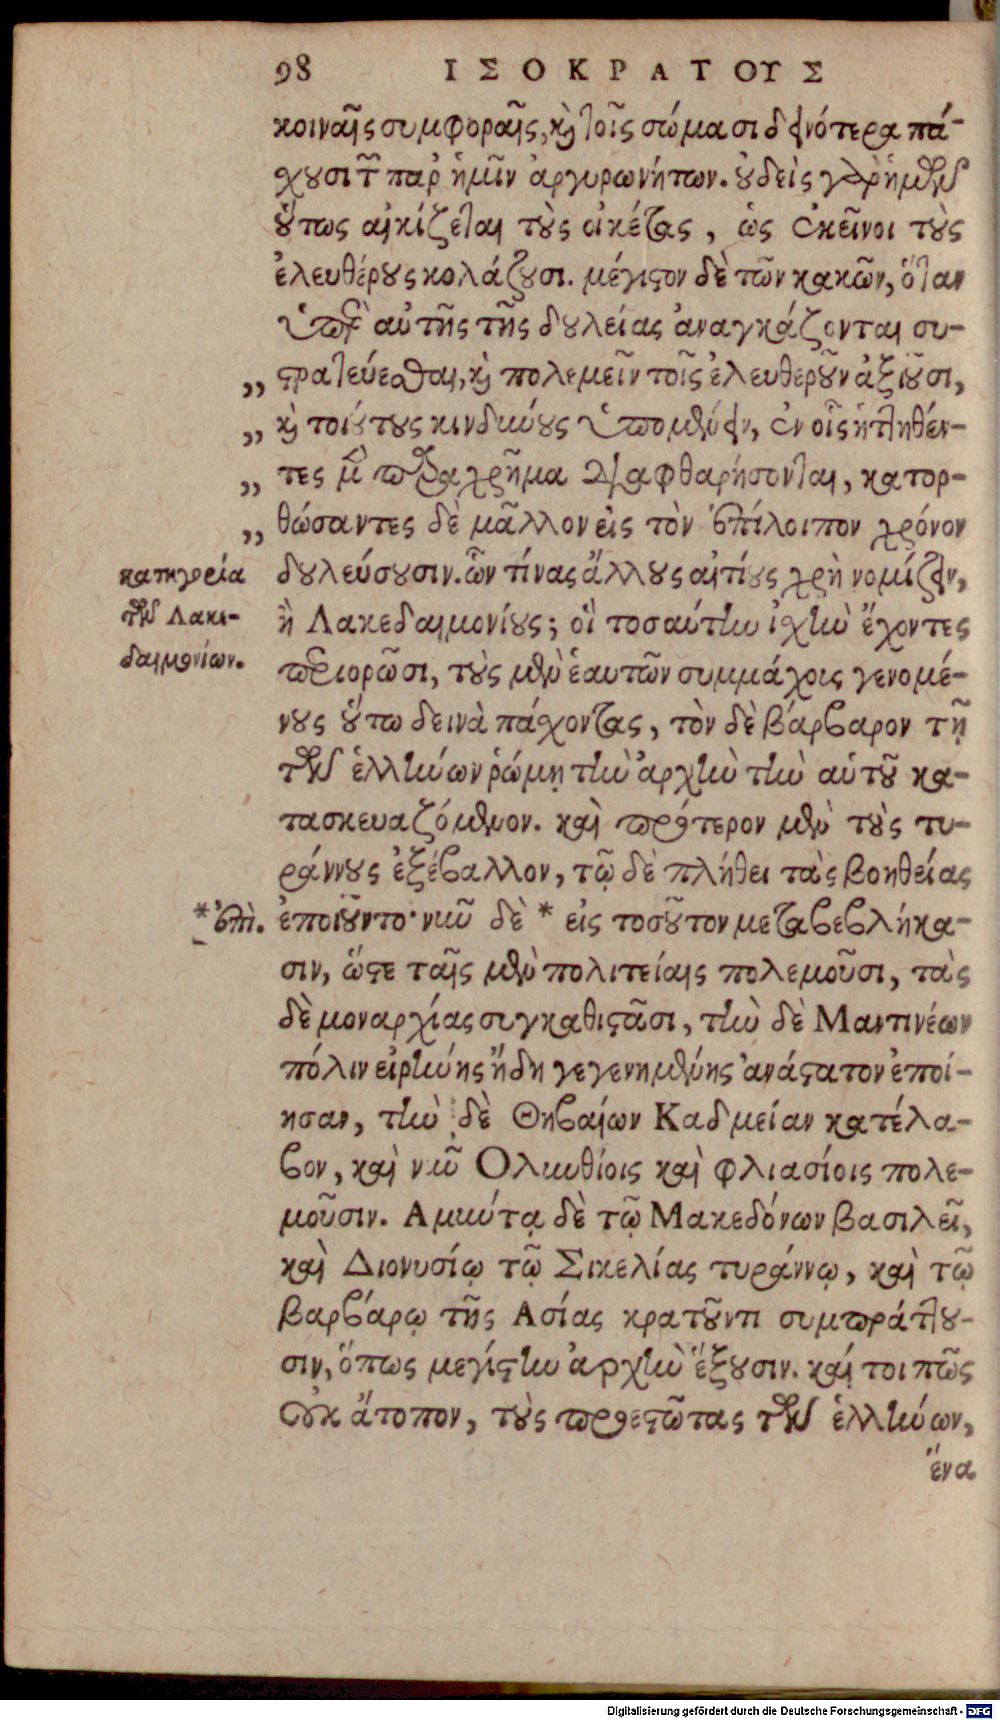 98 ΙΣΟΚΡΑΤΟΥΣ
κοιναῖς συμφοραῖς, καὶ τοῖς σώμασι δεινότερα πά-
χουσι τῶν παρ' ἡμῖν ἀργυρωνήτων. οὐδεὶς γὰρ ἡμῶν
οὕτως αἰκίζεται τοὺς οἰκέτας, ὡς ἐκεῖνοι τοὺς
ἐλευθέρους κολάζουσι. μέγιστον δὲ τῶν κακῶν, ὅταν
ὑπὲρ αὐτῆς τῆς δουλείας ἀναγκάζονται συ-
„ στρατεύεσθαι, καὶ πολεμεῖν τοῖς ἐλευθεροῦν ἀξιοῦσι,
„ καὶ τοιούτους κινδύνους ὑπομένειν, ἐν οἷς ἡττηθέν-
„ τες μὲν παραχρῆμα διαφθαρήσονται, κατορ-
„ θώσαντες δὲ μᾶλλον εἰς τὸν ἐπίλοιπον χρόνον
κατηγορία
τῶν Λακε-
δαιμονίων.
δουλεύσουσιν. ὧν τίνας ἄλλους αἰτίους χρὴ νομίζειν,
ἢ Λακεδαιμονίους; οἳ τοσαύτην ἰσχὺν ἔχοντες
περιορῶσι, τοὺς μὲν ἑαυτῶν συμμάχοις γενομέ-
νους οὕτω δεινὰ πάχοντας, τὸν δὲ βάρβαρον τῇ
τῶν ἑλλήνων ῥώμῃ τὴν ἀρχὴν τὴν αὑτοῦ κα-
τασκευαζόμενον. καὶ πρότερον μὲν τοὺς τυ-
ράννους ἐξέβαλλον, τῷ δὲ πλήθει τὰς βοηθείας
*ἐπὶ. ἐποιοῦντο· νῦν δὲ * εἰς τοσοῦτον μεταβεβλήκα-
σιν, ὥστε ταῖς μὲν πολιτείαις πολεμοῦσι, τὰς
δὲ μοναρχίας συγκαθιστᾶσι, τὴν δὲ Μαντινέων
πόλιν εἰρήνης ἤδη γεγενημένης ἀνάστατον ἐποί-
ησαν, τὴν δὲ Θηβαίων Καδμείαν κατέλα-
βον, καὶ νῦν Ολυνθίοις καὶ φλιασίοις πολε-
μοῦσιν. Αμύντᾳ δὲ τῷ Μακεδόνων βασιλεῖ,
καὶ Διονυσίῳ τῷ Σικελίας τυράννῳ, καὶ τῷ
βαρβάρῳ τῆς Ασίας κρατοῦντι συμπράττου-
σιν, ὅπως μεγίστην ἀρχὴν ἕξουσιν. καί τοι πῶς
οὐκ ἄτοπον, τοὺς προεστῶτας τῶν ἑλλήνων,
ἕνα
Digitalisierung gefördert durch die Deutsche Forschungsgemeinschaft - DFG